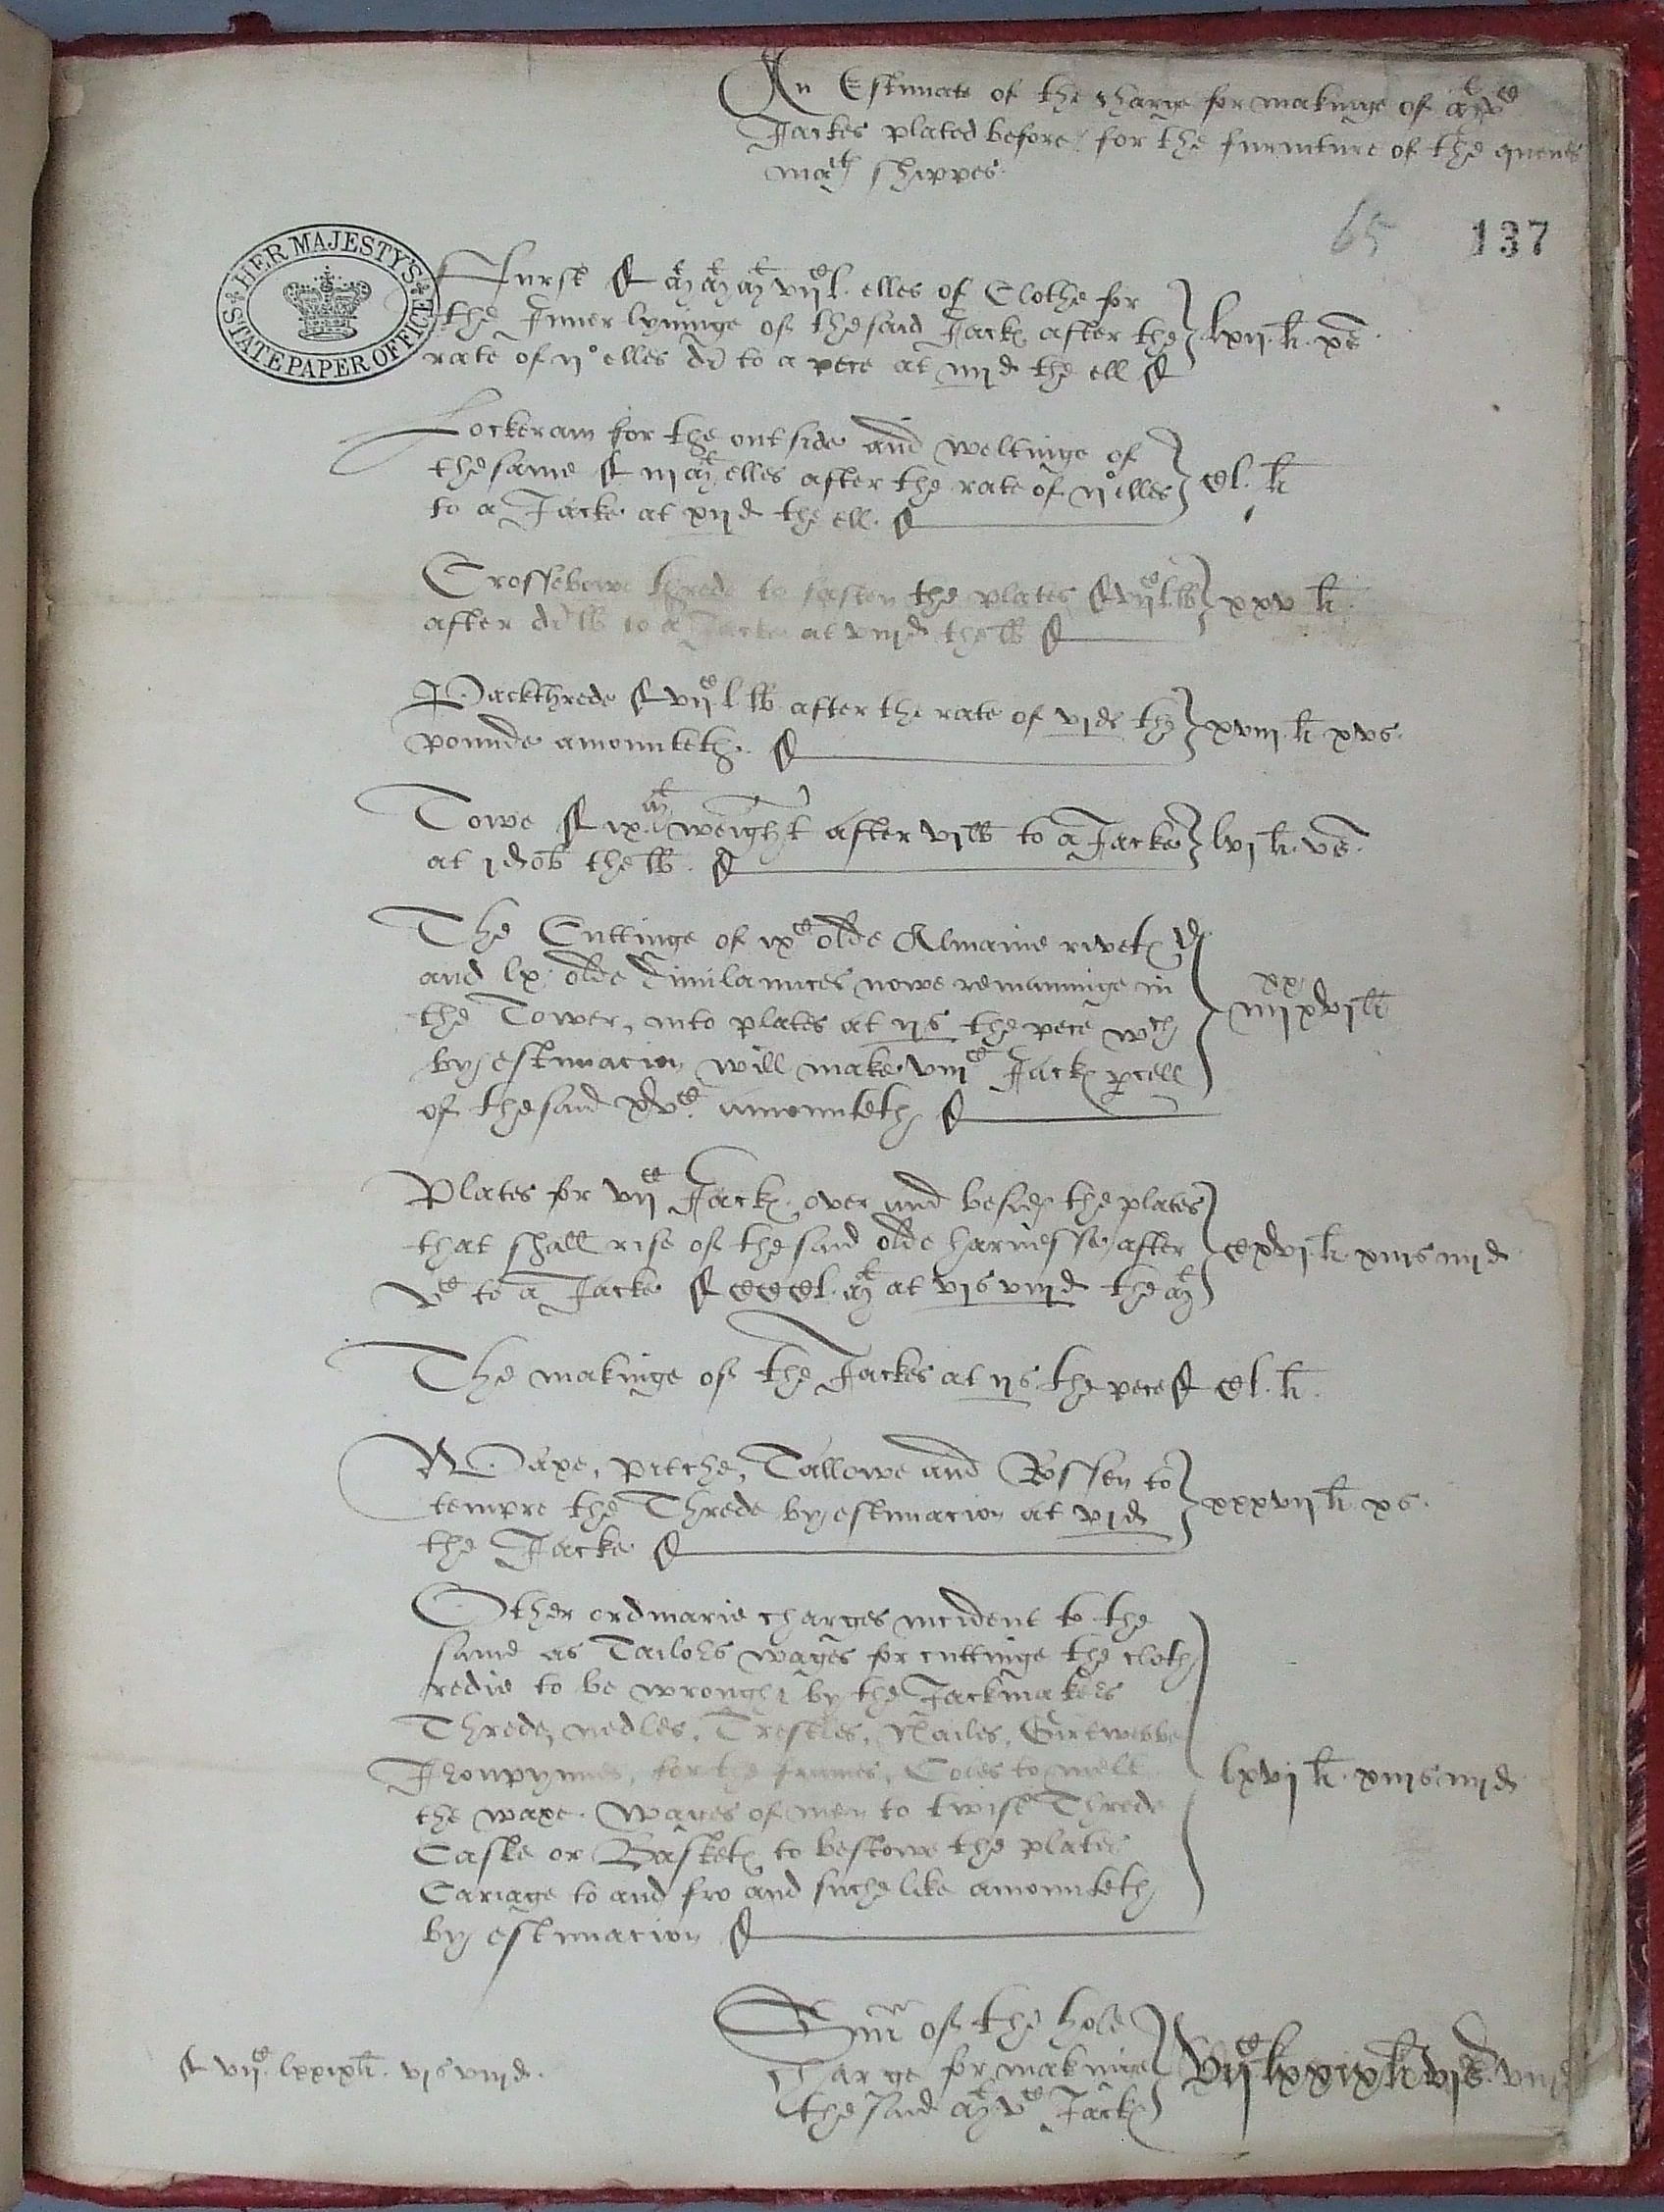 An Estimate of the charge for makinge of m^l v^c
Jackes plated before / for the furniture of the quenes
ma^ties shippes.
65 137
HER MAJESTY'S STATE PAPER OFFICE
Furst m^l m^l m^l vii^c l. elles of Clothe for
the Inner lyninge of the said Jack after the
rate of ii^o elles di to a pece at iiii d the ell
lxii. li. x s.
Lockeram for the outside and weltinge of
the same iii m^l elles after the rate of ii^o elles
to a Jacke at xii d the ell.
cl. li
Crossebowe threde to fasten the plates vii^c l. lb
after di lb to a Jacke at viii d the lb
xxv li.
Packthrede vii^c l lb after the rate of vi d the
pounde amounteth.
xviii. li xv s.
Towe ix m^l weight after vi lb to a Jacke
at i d ob the lb.
lvi li. v s.
The Cuttinge of ix^c olde Almaine rivet
and lx olde Dimilaunces nowe remaininge in
the Tower, into plates at ii s the pece w^ch
by estimacion will make viii^c Jack pcell
of the said xv^c amounteth
iiii^xx xvi li
Plates for vii^c Jack over and besides the plates
that shall rise of the said olde harnesse after
v^c to a Jacke cccl. m^l at vi s viii d the m^l
cxvi. li. xiii s iiii d
The makinge of the Jackes at ii s the pece cl. li.
Waxe, pitche, Tallowe and Rossen to
tempre the Threde by estimacion at vi d
the Jacke
xxxvii li x s.
Other ordinarie charges incident to the
same as Tailors wages for cuttinge the cloth
redie to be wrought by the Jackmakers
Threde, nedles, Trestles, Nailes, Girtwebbe
Ironpynnes, for the frames, Coles to melt
the waxe. Wages of men to twist Threde
Caske or Basket to bestowe the plates
Cariage to and fro and suche like amounteth
by estimacion
lxvi li. xiii s iiii d
Sum of the hole
charge for makinge
the said m^l v^c Jack
vii^c lxxix li vi s. viii d
vii^c lxxix li. vi s viii d.